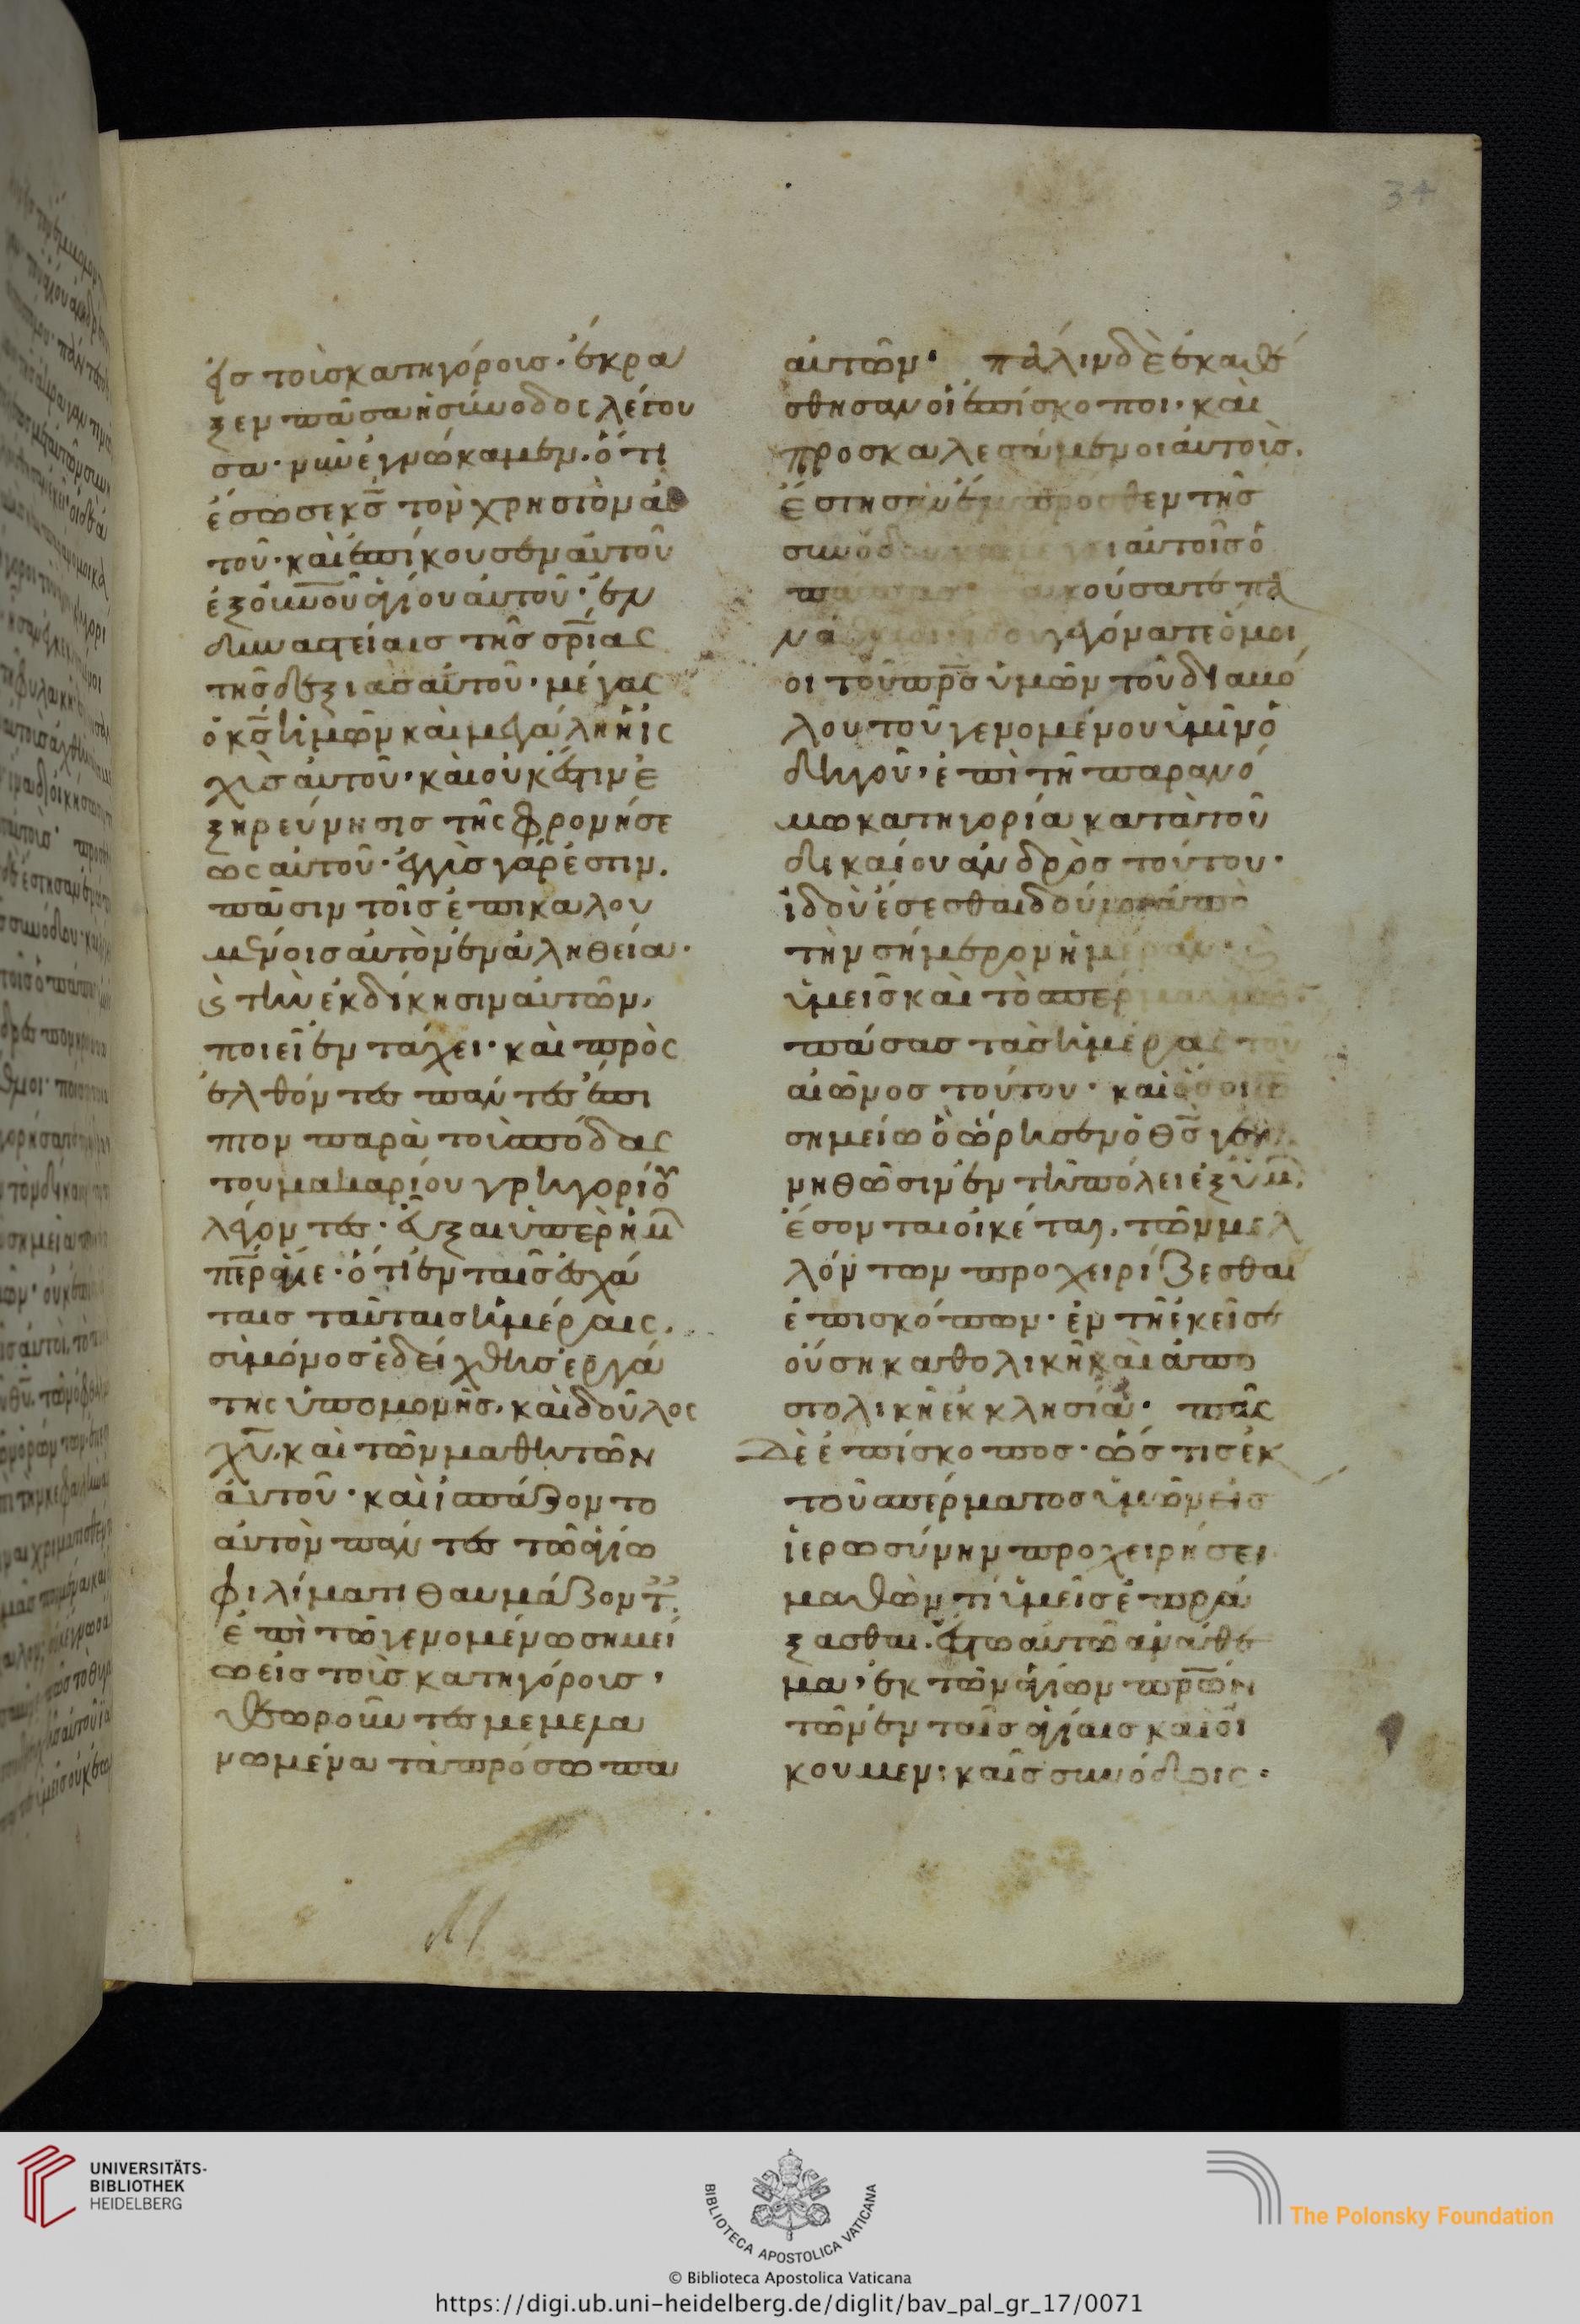 34
ἐσ τοῖσ κατηγόροισ· ἔκρα
ξεν πᾶσα ἡ σύνοδος λέγου
σα· νῦν ἐγνώκαμεν. ὅτι
ἔσωσε κ̅σ̅ τὸν χρηστὸν ἀυ
τοῦ· καὶ ἐπίκουσεν αὐτοῦ
ἐξ ο̅υ̅ν̅ο̅υ̅ ἁγίου αὐτοῦ· ἐν
δυναστείαισ τῆσ σ̅ρ̅ίας
τῆσ δεξιᾶσ αὐτοῦ· μέγας
ὁ κ̅σ̅ ἡμῶν καὶ μεγάλη ἡ ἰς
χὺσ αὐτοῦ· καὶ οὐκ ἔστιν ἐ
ξηρεύνησισ τῆς φρονήσε
ως αὐτοῦ· ἐγγὺσ γάρ ἐστιν.
πᾶσιν τοῖσ ἐπικαλου
μένοισ αὐτὸν ἐν ἀληθεία·
ϛ τὴν ἐκδίκησιν αὐτῶν,
ποιεῖ ἐν τάχει· καὶ προς
ελθόντες πάντες ἔπι
πτον παρὰ τοὺσ πόδας
του μακαρίου γρηγορίου
λέγοντες· εὖξαι ὑπὲρ ἡμ
π̅ε̅ρ̅ ἅγιε· ὅτι ἐν ταῖσ ἐσχά
ταισ ταύταισ ἡμέραις.
σὺ μόνοσ ἐδείχθησ ἐργά
της ὑπομονῆσ, καὶ δοῦλος
χ̅υ̅, καὶ τῶν μαθητῶν
αὐτοῦ· καὶ ἠσπάζοντο
αὐτὸν πάντες τῶ ἁγίω
φιλίματι θαυμάζοντ
ἐπὶ τῶ γενομένω σημεί
ω εἰσ τοὺσ κατηγόρουσ,
θεωροῦντες μεμελα
νωμένα τὰ πρόσωπα
αὐτῶν· πάλιν δὲ ἐκαθέ
σθησαν οἱ ἐπίσκοποι· καὶ
προσκαλεσάμενοι αὐτοὺσ.
ἔστησαν ἔμπροσθεν τῆσ
συνόδου αὐτοῖσ ὁ
ἀκούσατε πα
γεγόνατε ὅμοι
οι τοῦ π̅ρ̅σ̅ ὑμῶν τοῦ διαβό
λου τοῦ γενομένου ὑμῖν ὁ
δηγοῦ· ἐπὶ τῆ παρανό
μω κατηγορία κατὰ τοῦ
δικαίου ἀνδρὸσ τούτου·
ἰδοὺ ἔσεσθαι δοῦλοι ἀπὸ
τὴν σήμερον ἡμέραν· ϛ
ὑμεῖσ καὶ τὸ σπέρμα ὑμῶν
πάσασ τὰσ ἡμέρας τοῦ
αἰῶνοσ τούτου· καὶ ὅσοι
σημείω ὃ ὥρισεν ὁ θ̅σ̅ γεν
νηθῶσιν ἐν τῆ πόλει ἐξ ὑμ,
ἔσονται οἰκέται, τῶν μελ
λόντων προχειρίζεσθαι
ἐπισκόπων· ἐν τῆ ἐκεῖσε
οὔση καθολικῆ καὶ ἀπο
στολικῆ ἐκκλησία· πᾶς
δὲ ἐπίσκοποσ· ὥστισ ἐκ
τοῦ σπέρματοσ ὑμῶν εἰσ
ἱερωσύνην προχειρήσει
μαθὼν τί ὑμεῖσ ἐπρά
ξασθαι. ἔστω αὐτῶ ἀνάθε
μα, ἐκ τῶν ἁγίων π̅ρ̅ων
τῶν ἐν ταῖσ ἁγίαισ καὶ οἰ
κουμενικαῖσ συνόδοις·
UNIVERSITÄTS-
BIBLIOTHEK
HEIDELBERG
BIBLIOTECA APOSTOLICA VATICANA
The Polonsky Foundation
© Biblioteca Apostolica Vaticana
https://digi.ub.uni-heidelberg.de/diglit/bav_pal_gr_17/0071